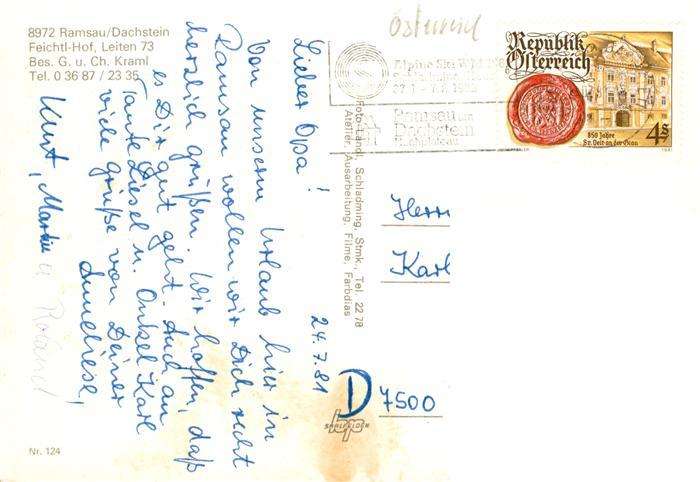 8972 Ramsau/Dachstein
Feichtl-Hof, Leiten 73
Bes. G. u. Ch. Kraml
Tel. 0 36 87 / 23 35
Österreich
Republik
Österreich
850 Jahre
St. Veit an der Glan
4 S
Ramsau am
Dachstein
24.7.81
Lieber Opa!
Von unserem Urlaub hier in
Ramsau wollen wir Dich recht
herzlich grüßen. Wir hoffen, daß
es Dir gut geht. Auch an
Tante Liesel u. Onkel Karl
viele Grüße von Deiner
Anneliese,
Kurt, Martin u Roland
Foto Landl, Schladming, Stmk., Tel. 22 78
Atelier, Ausarbeitung, Filme, Farbdias
Herrn
Karl
D 7500
SAALFELDEN
Nr. 124